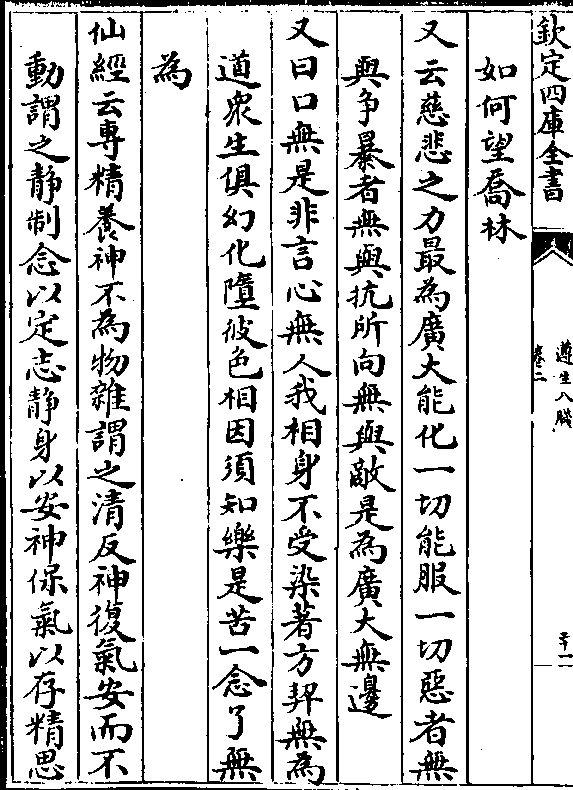 欽定四庫全書
遵生八牋
卷二
二十一
如何望喬林
又云慈悲之力最為廣大能化一切能服一切惡者無
與争暴者無與抗所向無與敵是為廣大無邊
又曰口無是非言心無人我相身不受染著方契無為
道衆生俱幻化墮彼色相因須知樂是苦一念了無
為
仙經云專精養神不為物雜謂之清反神復氣安而不
動謂之静制念以定志静身以安神保氣以存精思